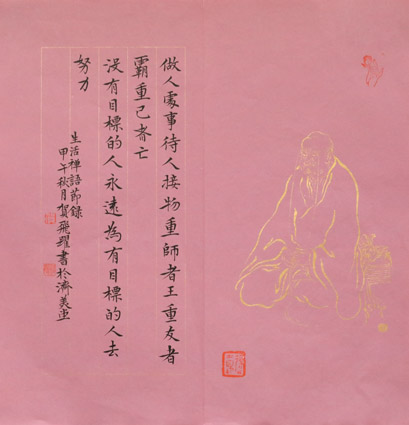 做人處事待人接物重師者王重友者
霸重己者亡
沒有目標的人永遠為有目標的人去
努力
生活禪語節錄
甲午秋月賀飛躍書於濟美堂